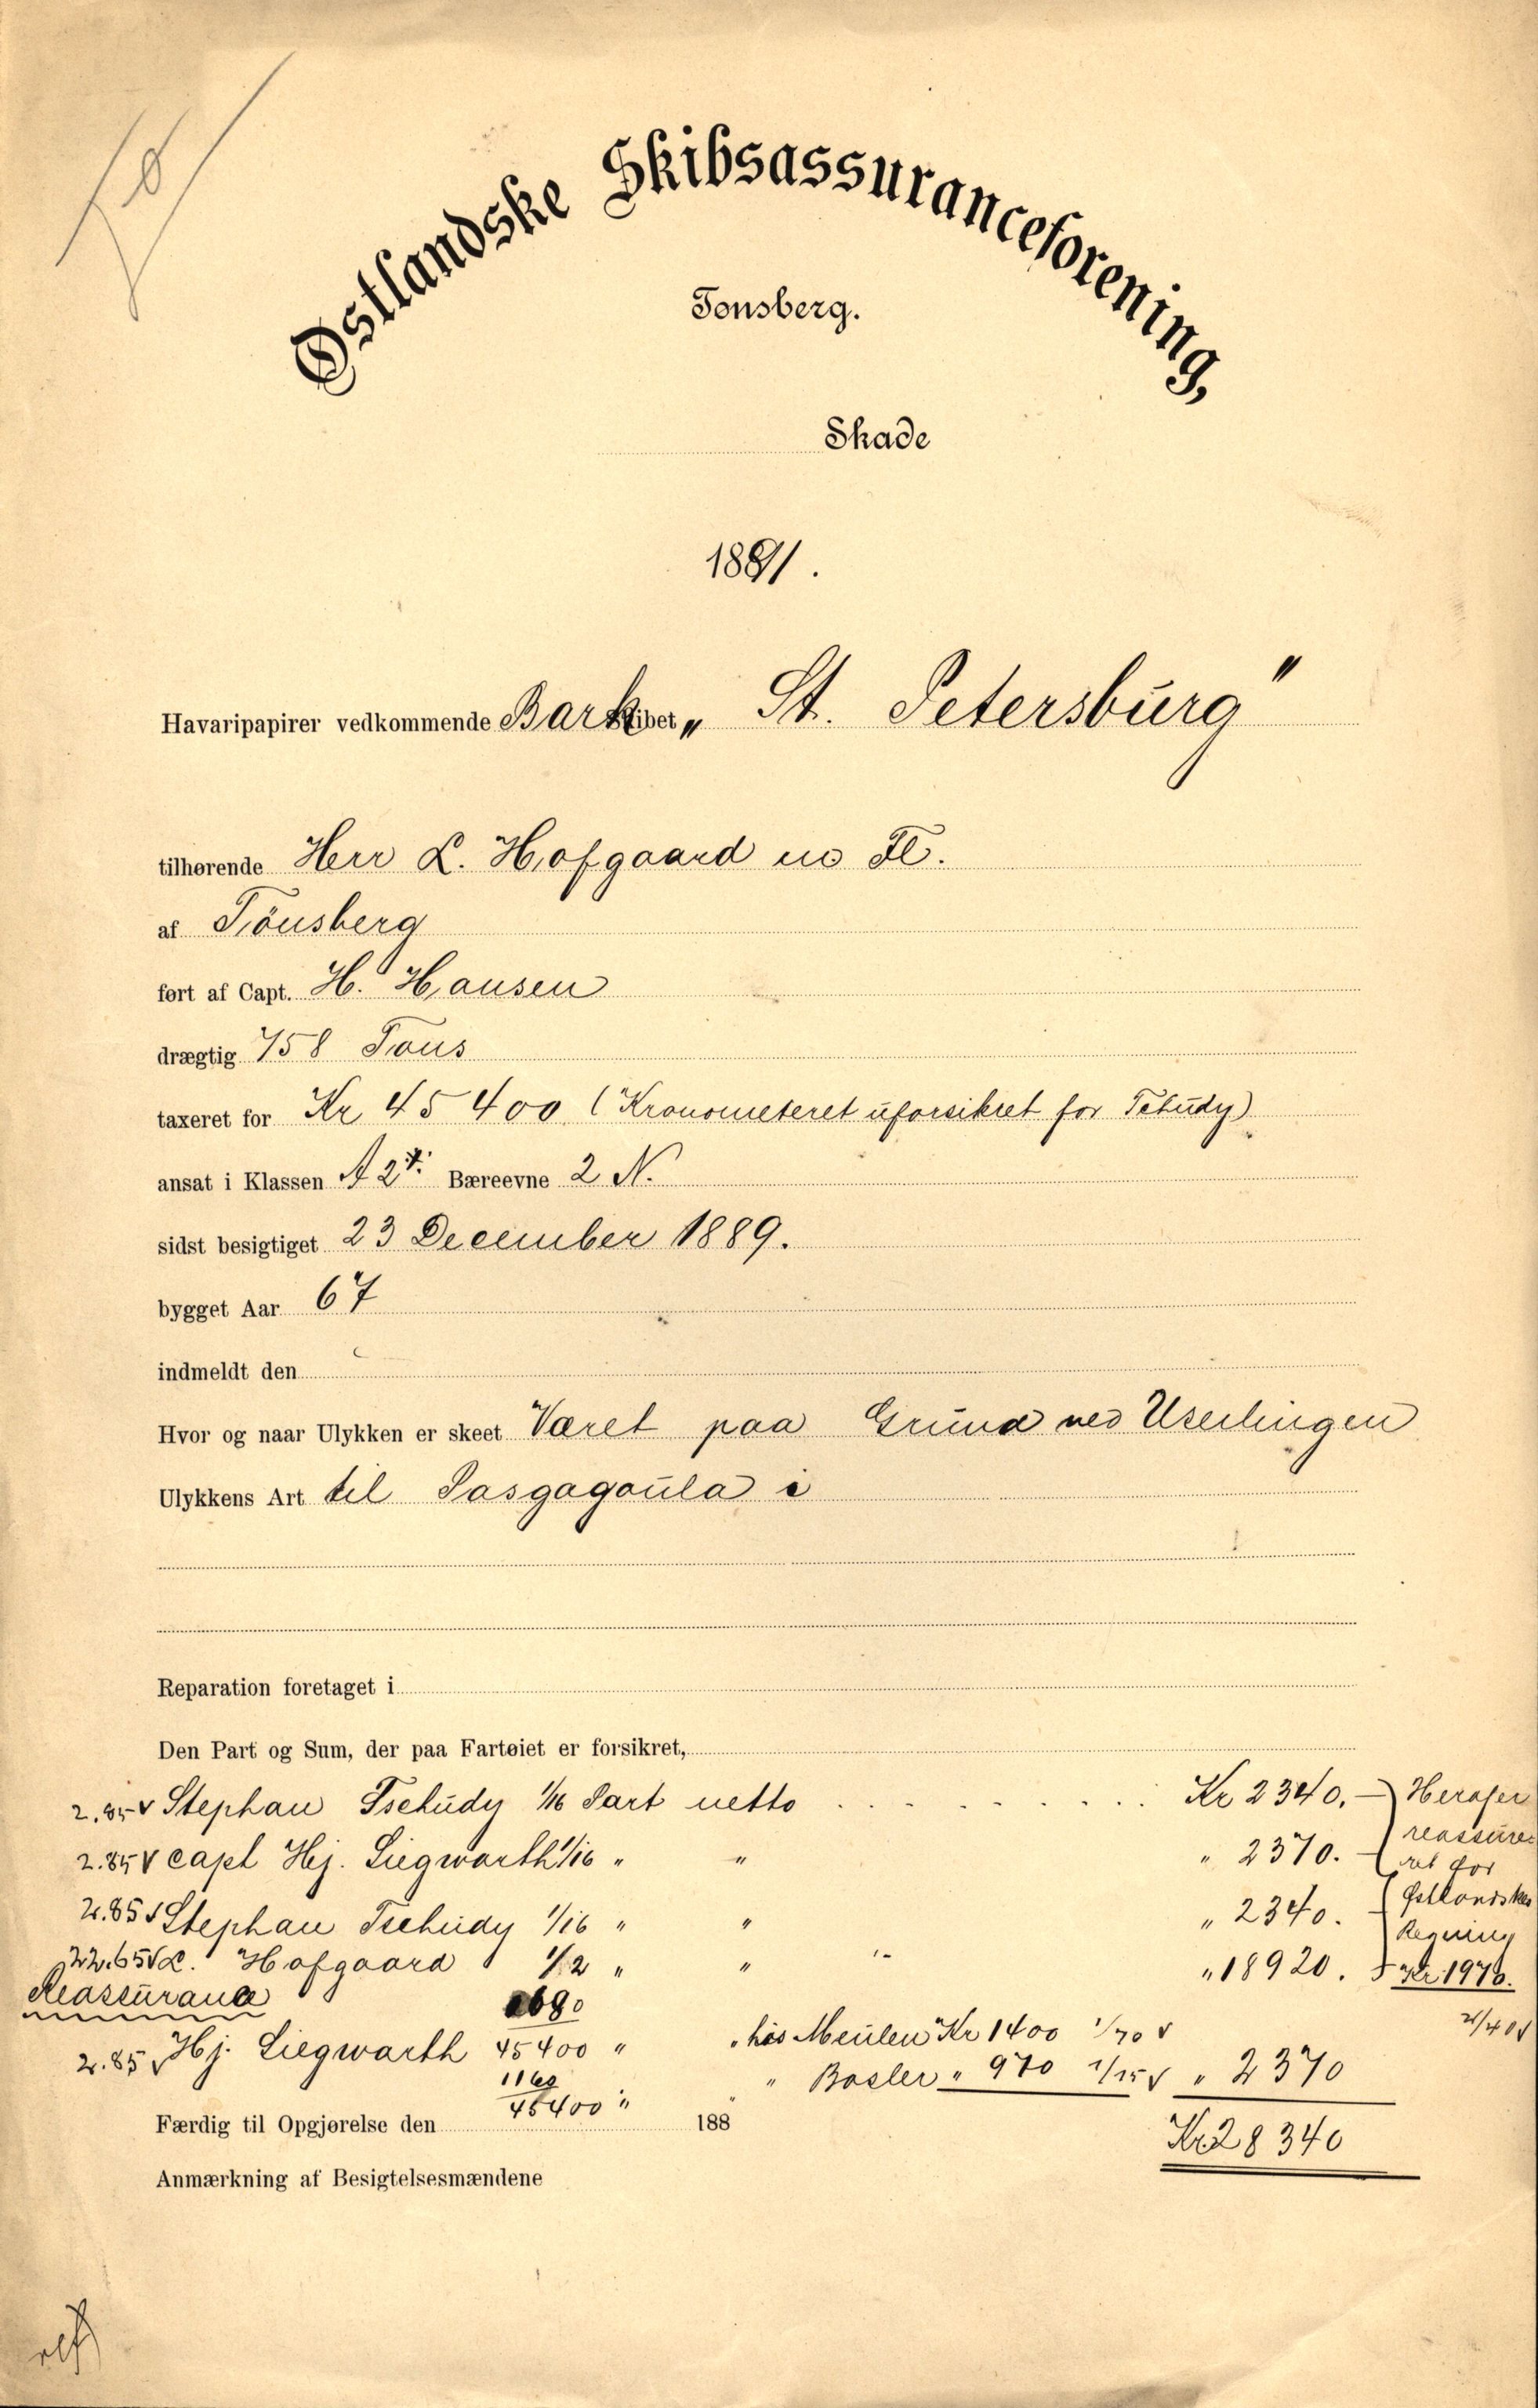 Østlandske Skibsassuranceforening,
Tønsberg.
Skade
1891.
Havaripapirer vedkommende Bark skibet „St. Petersburg"
tilhørende Herr L. Hofgaard m Fl.
af Tönsberg
ført af Capt. H. Hansen
drægtig 758 Tons
taxeret for Kr 45400 (Kronometeret uforsikret for Tchudy)
ansat i Klassen A 2 Bæreevne 2 N.
sidst besigtiget 23 December 1889.
bygget Aar 67
indmeldt den
Hvor og naar Ulykken er skeet Været paa Grund ved Userlingen
Ulykkens Art til Pasgagoula i
Reparation foretaget i
Den Part og Sum, der paa Fartøiet er forsikret,
2.85 v Stephan Tschudy 1/16 Part netto . . . . . . . . . Kr 2340.- Heraf er
2.85 v capt Hj. Siegwarth 1/16 " " " 2370.- reassure-
2.85 v Stephan Tschudy 1/16 " " " 2340. ret for
Østlandskes
Regning
L. Hofgaard 1/2 " " "18920.
Reassurance 1690
2.85 v Hj. Siegwarth 45400 " hos Meulen Kr 1400 1/70 v
1160
45400 " " Basler " 970 v " 2370
Færdig til Opgjørelse den 188
Kr 28340
Anmærkning af Besigtelsesmændene